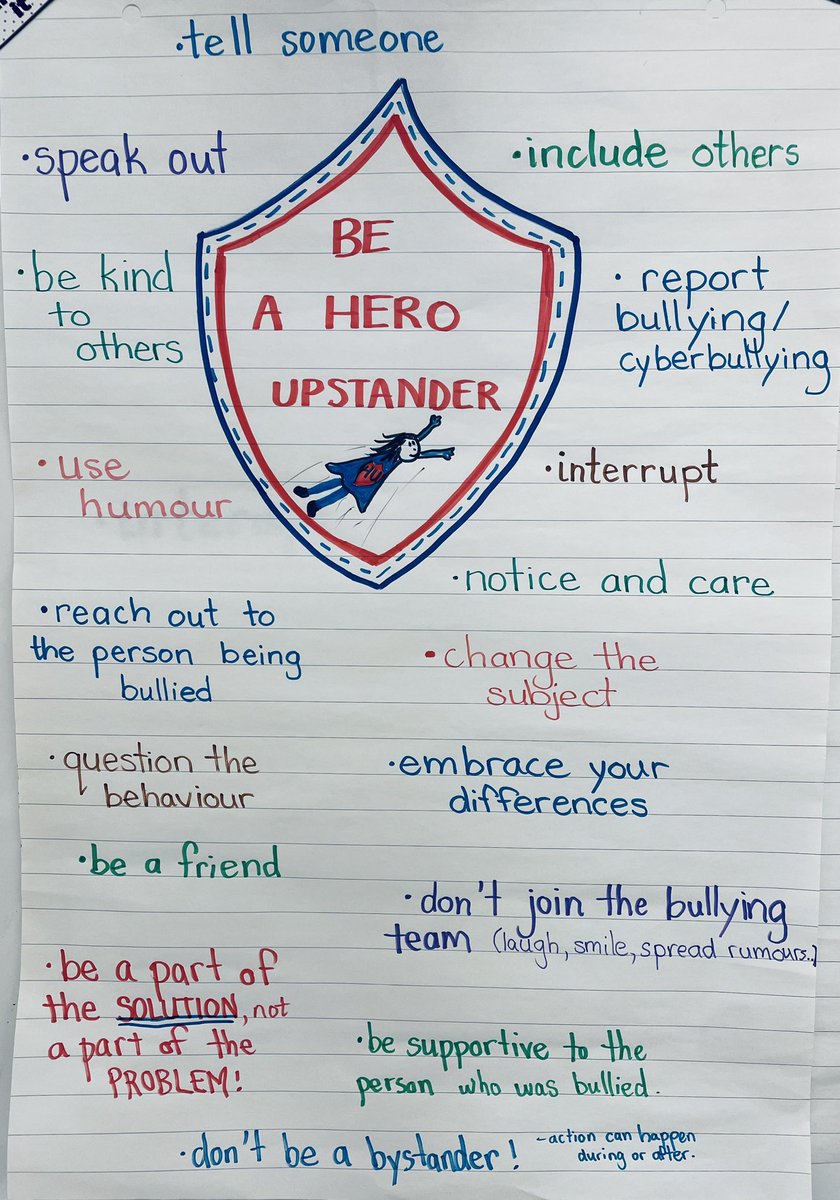 ·tell someone
·speak out
·include others
BE
A HERO
UPSTANDER
HU
·be kind
to
others
· report
bullying/
cyberbullying
·use
humour
·interrupt
·notice and care
·reach out to
the person being
bullied
·change the
subject
·question the
behaviour
·embrace your
differences
·be a friend
·don't join the bullying
team (laugh, smile, spread rumours..)
·be a part of
the SOLUTION, not
a part of the
PROBLEM!
·be supportive to the
person who was bullied.
·don't be a bystander!
-action can happen
during or after.